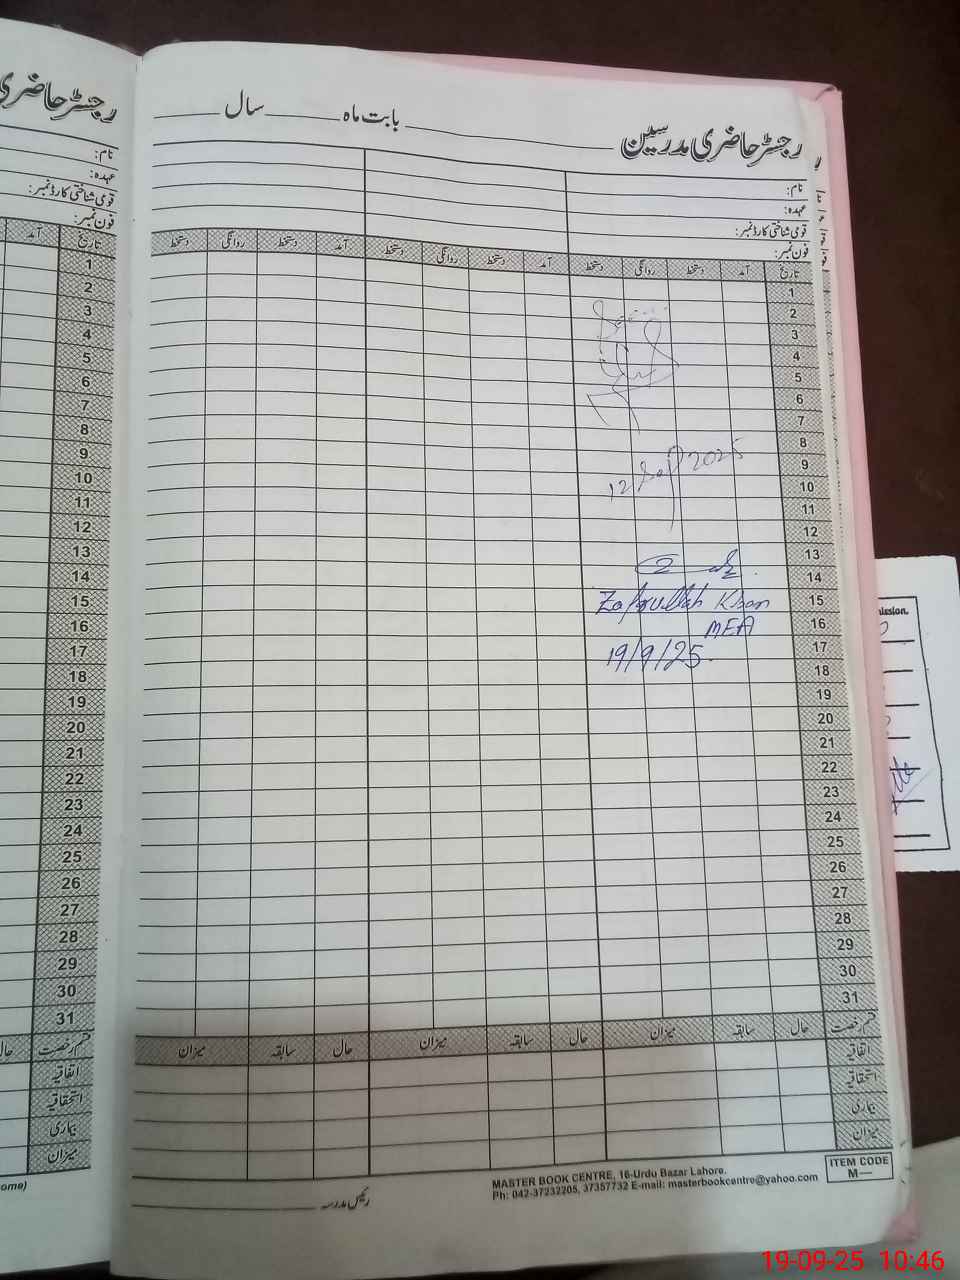 رجسٹر حاضری مدرسین بابت ماہ ______ سال ______
نام:
عہدہ:
قومی شناختی کارڈ نمبر:
فون نمبر:
تاریخ آمد دستخط روانگی دستخط آمد دستخط روانگی دستخط آمد دستخط روانگی دستخط
1
2
3
4
5
6
7
8
9
10
11
12
13
14
15
16
17
18
19
20
21
22
23
24
25
26
27
28
29
30
31
12 Sep 2025
Zafarullah Khan
MEA
19/9/25.
قسم رخصت حال سابقہ میزان حال سابقہ میزان حال سابقہ میزان
اتفاقیہ
استحقاقیہ
بیماری
میزان
رئیس مدرسہ
MASTER BOOK CENTRE, 16-Urdu Bazar Lahore.
Ph: 042-37232205, 37357732 E-mail: masterbookcentre@yahoo.com
ITEM CODE
M—
رجسٹر حاضری
نام:
عہدہ:
قومی شناختی کارڈ نمبر:
فون نمبر:
تاریخ آمد
1
2
3
4
5
6
7
8
9
10
11
12
13
14
15
16
17
18
19
20
21
22
23
24
25
26
27
28
29
30
31
قسم رخصت حال
اتفاقیہ
استحقاقیہ
بیماری
میزان
19-09-25 10:46